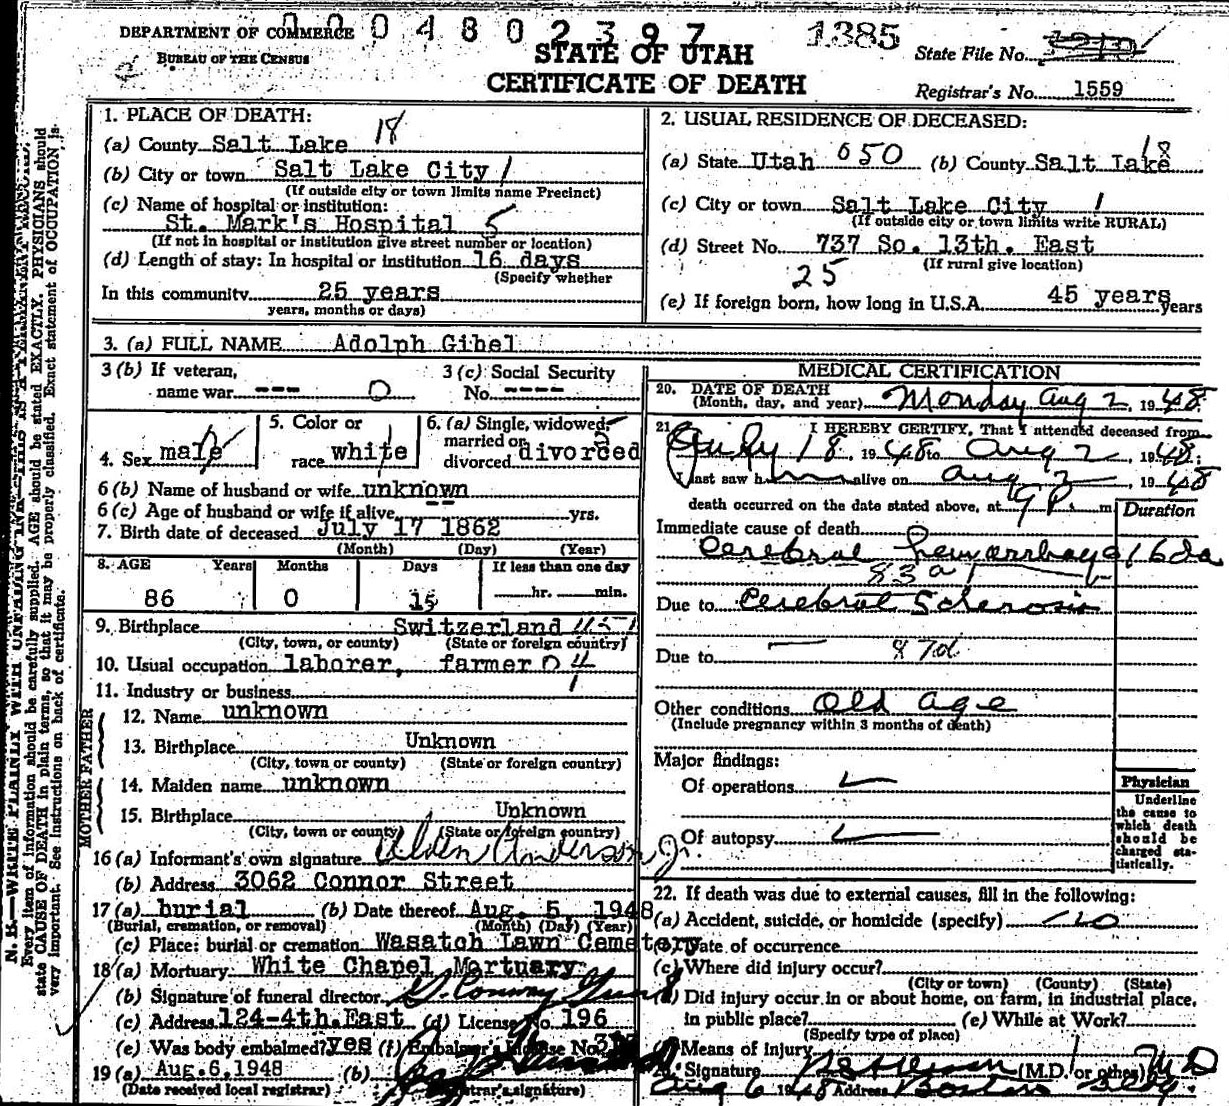 DEPARTMENT OF COMMERCE
BUREAU OF THE CENSUS
0004802397
1385
STATE OF UTAH
CERTIFICATE OF DEATH
State File No.
Registrar's No. 1559
N. B.—WRITE PLAINLY WITH UNFADING INK—THIS IS A PERMANENT RECORD.
Every item of information should be carefully supplied. AGE should be stated EXACTLY. PHYSICIANS should
state CAUSE OF DEATH in plain terms, so that it may be properly classified. Exact statement of OCCUPATION is
very important. See instructions on back of certificate.
1. PLACE OF DEATH:
(a) County Salt Lake 18
(b) City or town Salt Lake City 1
(If outside city or town limits name Precinct)
(c) Name of hospital or institution:
St. Mark's Hospital 5
(If not in hospital or institution give street number or location)
(d) Length of stay: In hospital or institution 16 days
(Specify whether
In this community 25 years
years, months or days)
2. USUAL RESIDENCE OF DECEASED:
(a) State Utah 650 (b) County Salt Lake 18
(c) City or town Salt Lake City 1
(If outside city or town limits write RURAL)
(d) Street No. 737 So. 13th. East
(If rural give location)
25
(e) If foreign born, how long in U.S.A. 45 years years
3. (a) FULL NAME Adolph Gibel
3 (b) If veteran,
name war --- 0
3 (c) Social Security
No. ----
4. Sex male
5. Color or
race white
6. (a) Single, widowed,
married or
divorced divorced
6 (b) Name of husband or wife unknown
6 (c) Age of husband or wife if alive -- yrs.
7. Birth date of deceased July 17 1862
(Month) (Day) (Year)
8. AGE Years Months Days If less than one day
86 0 15 hr. min.
9. Birthplace Switzerland
(City, town, or county) (State or foreign country)
10. Usual occupation laborer, farmer 04
11. Industry or business
FATHER
12. Name unknown
13. Birthplace Unknown
(City, town or county) (State or foreign country)
MOTHER
14. Maiden name unknown
15. Birthplace Unknown
(City, town or county) (State or foreign country)
16 (a) Informant's own signature Alden Anderson Jr.
(b) Address 3062 Connor Street
17 (a) burial (b) Date thereof Aug. 5 1948
(Burial, cremation, or removal) (Month) (Day) (Year)
(c) Place: burial or cremation Wasatch Lawn Cemetery
18 (a) Mortuary White Chapel Mortuary
(b) Signature of funeral director
(c) Address 124-4th.East (d) License No. 196
(e) Was body embalmed? yes (f) Embalmer's License No.
19 (a) Aug.6,1948 (b)
(Date received local registrar) (Registrar's signature)
MEDICAL CERTIFICATION
20. DATE OF DEATH
(Month, day, and year) Monday Aug 2, 1948
21. I HEREBY CERTIFY, That I attended deceased from
July 18, 1948 to Aug 2, 1948;
I last saw him alive on Aug 2, 1948
death occurred on the date stated above, at 9 P. m.
Duration
Immediate cause of death
Cerebral hemorrhage 16 da
83a1
Due to Cerebral Sclerosis
Due to — 87d
Other conditions Old age
(Include pregnancy within 3 months of death)
Major findings:
Of operations
Of autopsy
Physician
Underline
the cause to
which death
should be
charged sta-
tistically.
22. If death was due to external causes, fill in the following:
(a) Accident, suicide, or homicide (specify) no
(b) Date of occurrence
(c) Where did injury occur?
(City or town) (County) (State)
(d) Did injury occur in or about home, on farm, in industrial place,
in public place? (e) While at Work?
(Specify type of place)
(f) Means of injury
Signature (M.D. or other) M D
Aug 6 1948 Address Boston Bldg.